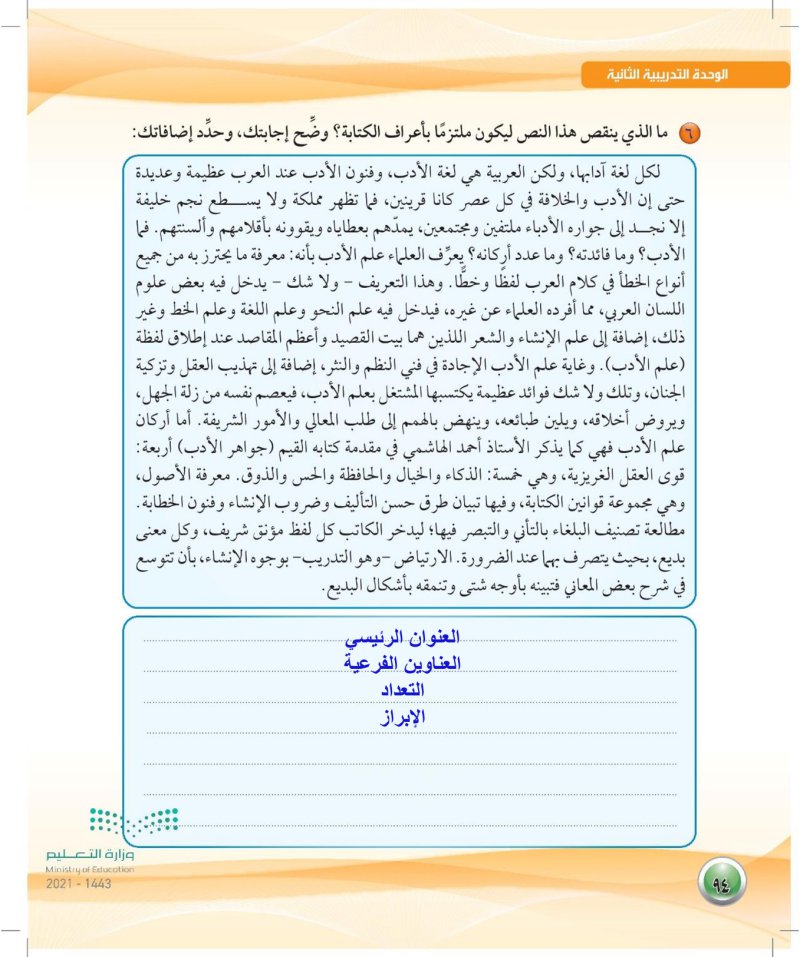 الوحدة التدريبية الثانية
٦ ما الذي ينقص هذا النص ليكون ملتزمًا بأعراف الكتابة؟ وضِّح إجابتك، وحدِّد إضافاتك:
لكل لغة آدابها، ولكن العربية هي لغة الأدب، وفنون الأدب عند العرب عظيمة وعديدة
حتى إن الأدب والخلافة في كل عصر كانا قرينين، فما تظهر مملكة ولا يسطع نجم خليفة
إلا نجد إلى جواره الأدباء ملتفين ومجتمعين، يمدّهم بعطاياه ويقوونه بأقلامهم وألسنتهم. فما
الأدب؟ وما فائدته؟ وما عدد أركانه؟ يعرِّف العلماء علم الأدب بأنه: معرفة ما يحترز به من جميع
أنواع الخطأ في كلام العرب لفظًا وخطًّا. وهذا التعريف – ولا شك – يدخل فيه بعض علوم
اللسان العربي، مما أفرده العلماء عن غيره، فيدخل فيه علم النحو وعلم اللغة وعلم الخط وغير
ذلك، إضافة إلى علم الإنشاء والشعر اللذين هما بيت القصيد وأعظم المقاصد عند إطلاق لفظة
(علم الأدب). وغاية علم الأدب الإجادة في فني النظم والنثر، إضافة إلى تهذيب العقل وتزكية
الجنان، وتلك ولا شك فوائد عظيمة يكتسبها المشتغل بعلم الأدب، فيعصم نفسه من زلة الجهل،
ويروض أخلاقه، ويلين طبائعه، وينهض بالهمم إلى طلب المعالي والأمور الشريفة. أما أركان
علم الأدب فهي كما يذكر الأستاذ أحمد الهاشمي في مقدمة كتابه القيم (جواهر الأدب) أربعة:
قوى العقل الغريزية، وهي خمسة: الذكاء والخيال والحافظة والحس والذوق. معرفة الأصول،
وهي مجموعة قوانين الكتابة، وفيها تبيان طرق حسن التأليف وضروب الإنشاء وفنون الخطابة.
مطالعة تصنيف البلغاء بالتأني والتبصر فيها؛ ليدخر الكاتب كل لفظ مؤنق شريف، وكل معنى
بديع، بحيث يتصرف بهما عند الضرورة. الارتياض –وهو التدريب– بوجوه الإنشاء، بأن تتوسع
في شرح بعض المعاني فتبينه بأوجه شتى وتنمقه بأشكال البديع.
العنوان الرئيسي
العناوين الفرعية
التعداد
الإبراز
وزارة التعليم
Ministry of Education
2021 - 1443
٩٤